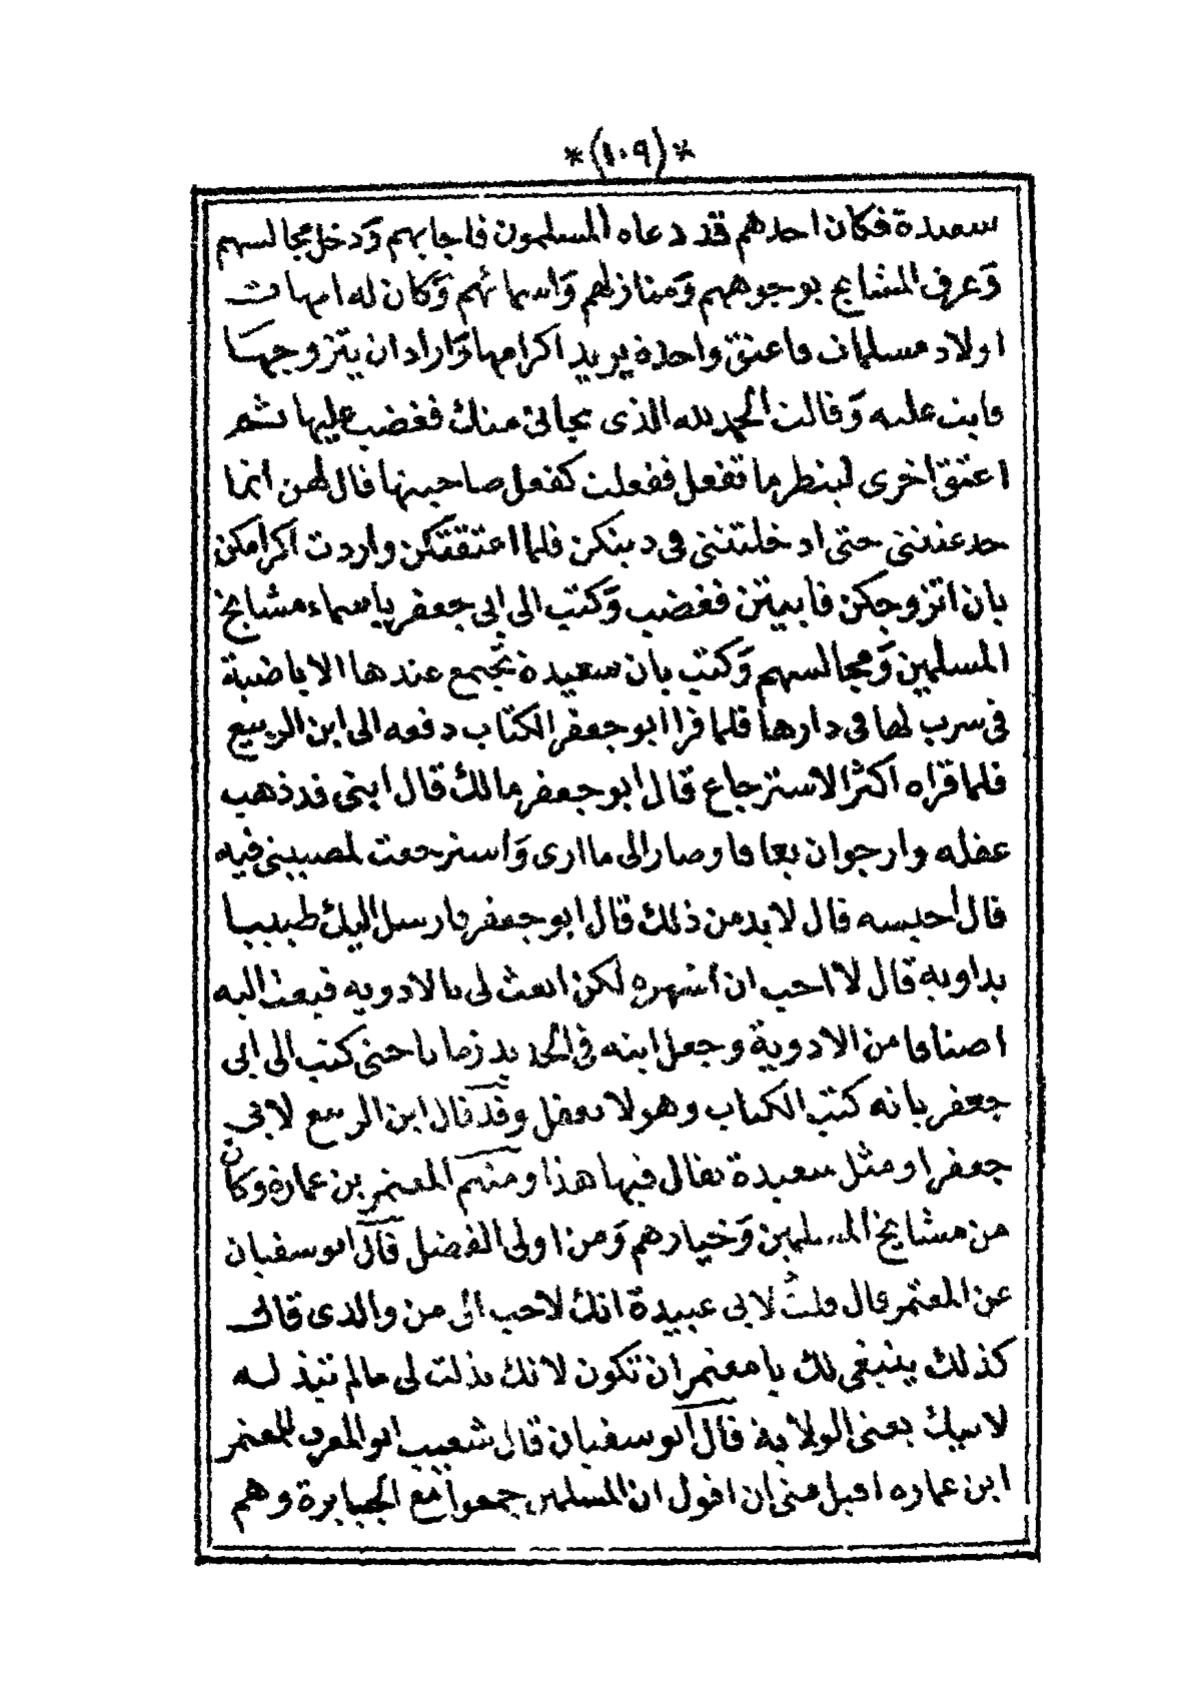 *(١٠٩)*
سعيدة فكان احدهم قد دعاه المسلمون فاجابهم وَدخل مجالسهم
وَعرف المشايخ بوجوههم وَمنازلهم وَاسمائهم وَكان له امهات
اولاد مسلمات فاعتق واحدة يريد اكرامها وَاراد ان يتزوجها
فابت عليه وَقالت الحمد لله الذى نجانى منك فغضب عليها ثم
اعتق اخرى لينظر ما تفعل ففعلت كفعل صاحبتها قال لهن انما
خدعتننى حتى ادخلتننى فى دينكن فلما اعتقتكن واردت اكرامكن
بان اتزوجكن فأبيتن فغضب وَكتب الى ابى جعفر بأسماء مشايخ
المسلمين وَمجالسهم وَكتب بان سعيدة تجتمع عندها الاباضية
فى سرب لها فى دارها فلما قرا ابو جعفر الكتاب دفعه الى ابن الربيع
فلما قراه اكثر الاسترجاع قال ابو جعفر مالك قال ابنى قد ذهب
عقله وارجو ان يعافا وصار الى ما ارى وَاسترجعت لمصيبتى فيه
قال احبسه قال لا بد من ذلك قال ابو جعفر فارسل اليك طبيبا
يداويه قال لا احب ان اشهره لكن ابعث لى بالادويه فبعث اليه
اصنافا من الادوية وجعل ابنه فى الحديد زمانا حتى كتب الى ابى
جعفر بانه كتب الكتاب وهو لا يعقل وقد قال ابن الربيع لابى
جعفر او مثل سعيدة يقال فيها هذا ومنهم المعتمر بن عمارة وكان
من مشايخ المسلمين وَخيارهم وَمن اولى الفضل قال ابو سفيان
عن المعتمر قال قلت لابى عبيدة انك لاحب الى من والدى قال
كذلك ينبغى لك يا معتمر ان تكون لانك بذلت لى مالم تبذله
لابيك يعنى الولاية قال ابو سفيان قال شعيب ابو المعرف للمعتمر
ابن عماره اقبل منى ان اقول ان المسلمين جمعوا مع الجبابرة وهم